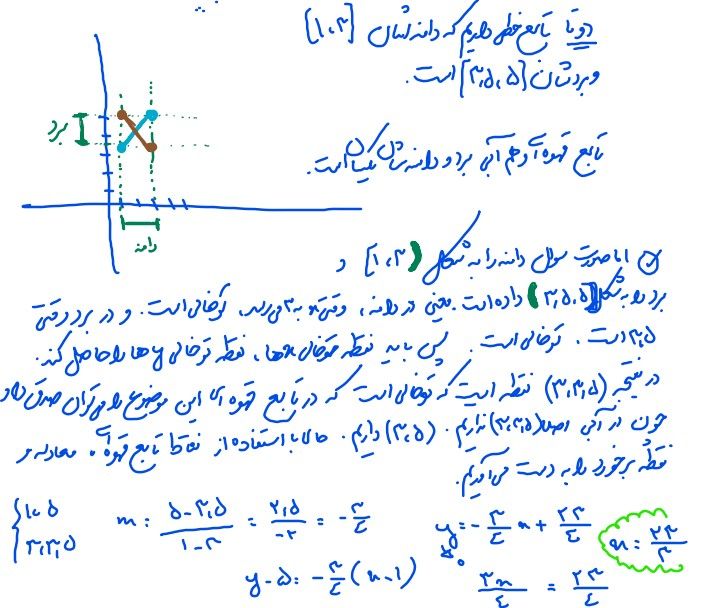 دوتا تابع خطی داریم که دامنه شان [۱،۳]
و بردشان [۳٫۵، ۵] است.
برد
تابع قهوه ای و هم آبی برد و دامنه شان یکسان است.
دامنه
اما صورت سوال دامنه را به شکل [۱،۳) و
برد را به شکل (۳٫۵،۵] داده است. یعنی در دامنه، وقتی x به ۳ می رسد، توخالی است. و در برد وقتی
۳٫۵ است، توخالی است. پس باید نقطه توخالی xها، نقطه توخالی yها را حاصل کند.
در نتیجه (۳،۳٫۵) نقطه است که توخالی است که در تابع قهوه ای این موضوع را می توان صدق داد
چون در آبی اصلا (۳،۳٫۵) نداریم. (۳،۵) داریم. حالا با استفاده از نقاط تابع قهوه ای، معادله و
نقطه برخورد را به دست می آوریم.
{ ۱، ۵
۳، ۳٫۵
m = (۵-۳٫۵)/(۱-۳) = /-۲ = -۳/۴
y = -۳/۴ x + ۲۳/۴
x = ۲۳/۳
y - ۵ = -۳/۴ (x - ۱)
۳x/۴ = ۲۳/۴